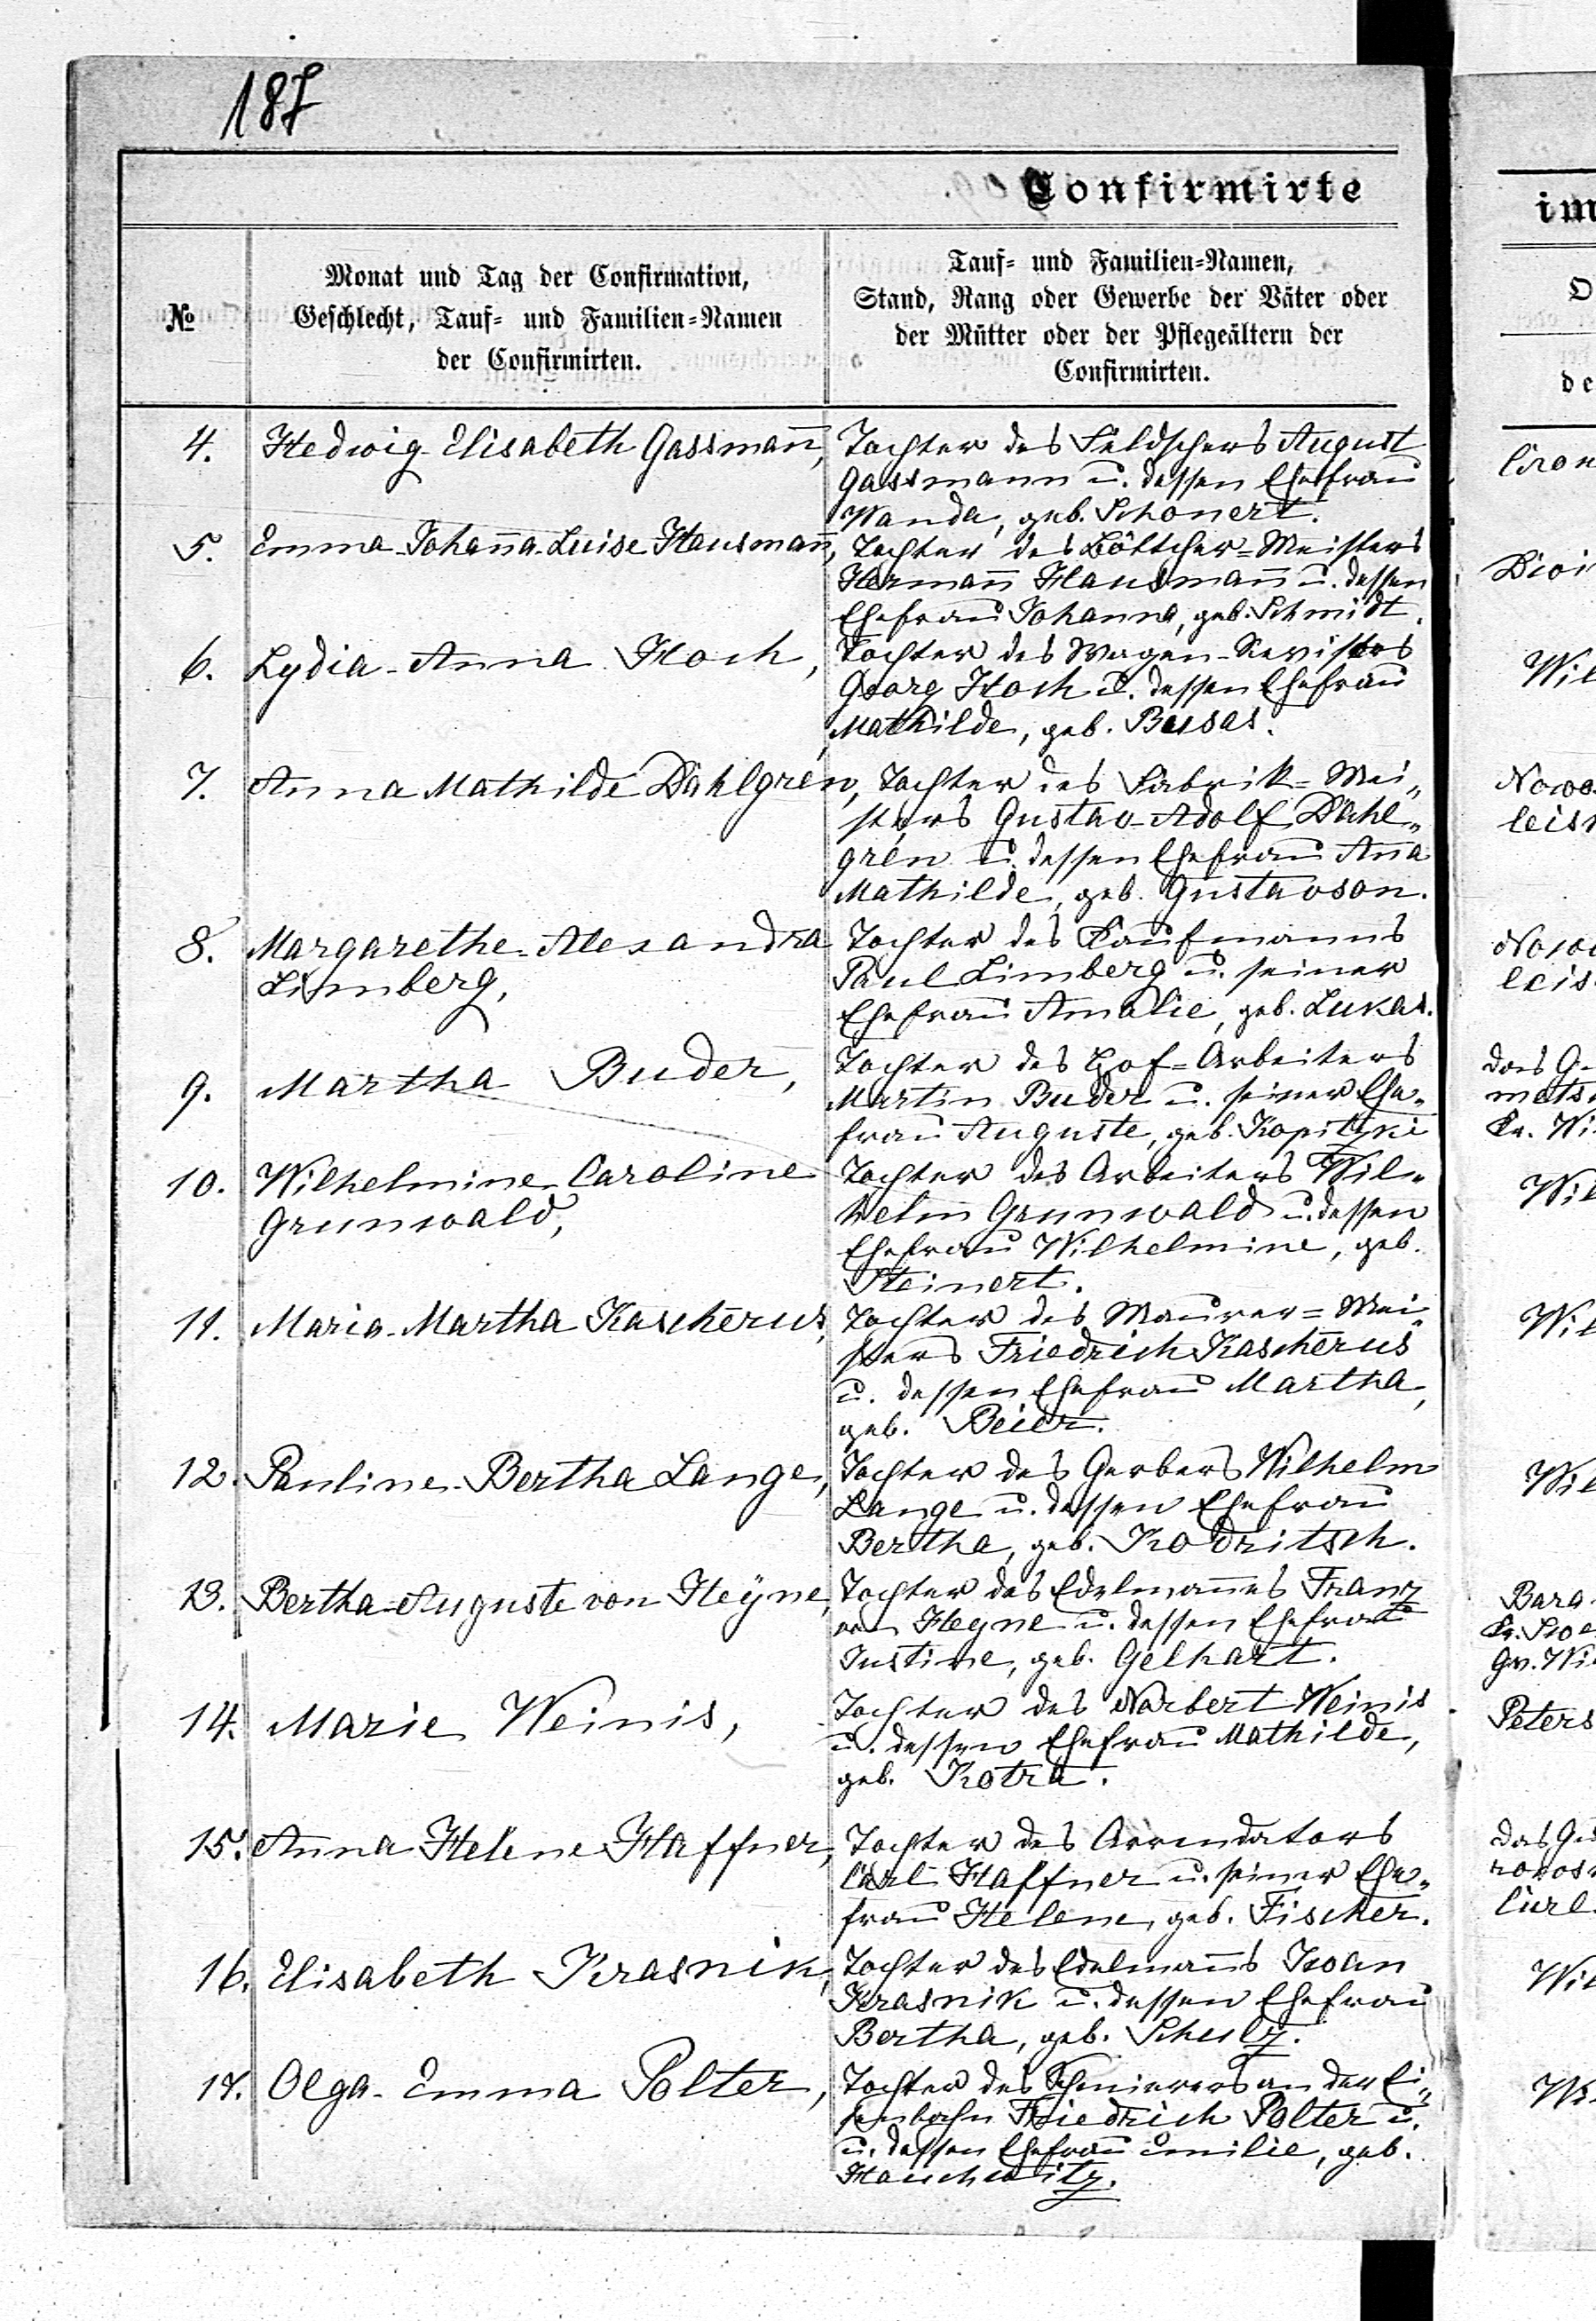 187
Confirmirte
№
Monat und Tag der Confirmation,
Geschlecht, Tauf- und Familien-Namen
der Confirmirten.
Tauf- und Familien-Namen,
Stand, Rang oder Gewerbe der Väter oder
der Mütter oder der Pflegeältern der
Confirmirten.
4. Hedwig-Elisabeth Gassmañ,
Tochter des Feldschers August
Gassmann u. dessen Ehefrau
Wanda, geb. Schonert.
5. Emma-Johaña-Luise Hausmañ,
Tochter des Böttcher-Meisters
Hermañ Hausmañ u. dessen
Ehefrau Johanna, geb. Schmidt.
6. Lydia-Anna Hoch,
Tochter des Wagen-Revisors
Georg Hoch u. dessen Ehefrau
Mathilde, geb. Bussas.
7. Anna Mathilde Dahlgrén,
Tochter des Fabrik-Mei-
sters Gustav-Adolf Dahl-
grén u. dessen Ehefrau Aña
Mathilde, geb. Gustavson.
8. Margarethe-Alexandra
Limberg,
Tochter des Kaufmanns
Paul Limberg u. seiner
Ehefrau Amalie, geb. Lukas.
9. Martha Buder,
Tochter des Hof-Arbeiters
Martin Buder u. seiner Ehe-
frau Auguste, geb. Kopitzki
10. Wilhelmine-Caroline
Grunwald,
Tochter des Arbeiters Wil-
helm Grunwald u. dessen
Ehefrau Wilhelmine, geb.
Steinert.
11. Maria-Martha Kascherus,
Tochter des Maurer-Mei-
sters Friedrich Kascherus
u. dessen Ehefrau Martha,
geb. Beier.
12. Pauline-Bertha Lange,
Tochter des Gerbers Wilhelm
Lange u. dessen Ehefrau
Bertha, geb. Kodritsch.
13. Bertha-Auguste von Heÿne,
Tochter des Edelmañes Franz
von Heyne u. dessen Ehefrau
Justine, geb. Gelhart.
14. Marie Weinis,
Tochter des Norbert Weinis
u. dessen Ehefrau Mathilde,
geb. Kotra.
15. Anna-Helene Haffner,
Tochter des Arrendators
Carl Haffner u. seiner Ehe-
frau Helene, geb. Fischer.
16. Elisabeth Krasnik,
Tochter des Edelmañs Iwan
Krasnik u. dessen Ehefrau
Bertha, geb. Schulz.
17. Olga-Emma Polter,
Tochter des Schmierers an der Ei-
senbahn Friedrich Polter u.
u. dessen Ehefrau Emilie, geb.
Hauschwitz.
im
Wil
Nowo
Wil
Wil
Wil
Peters
Wil